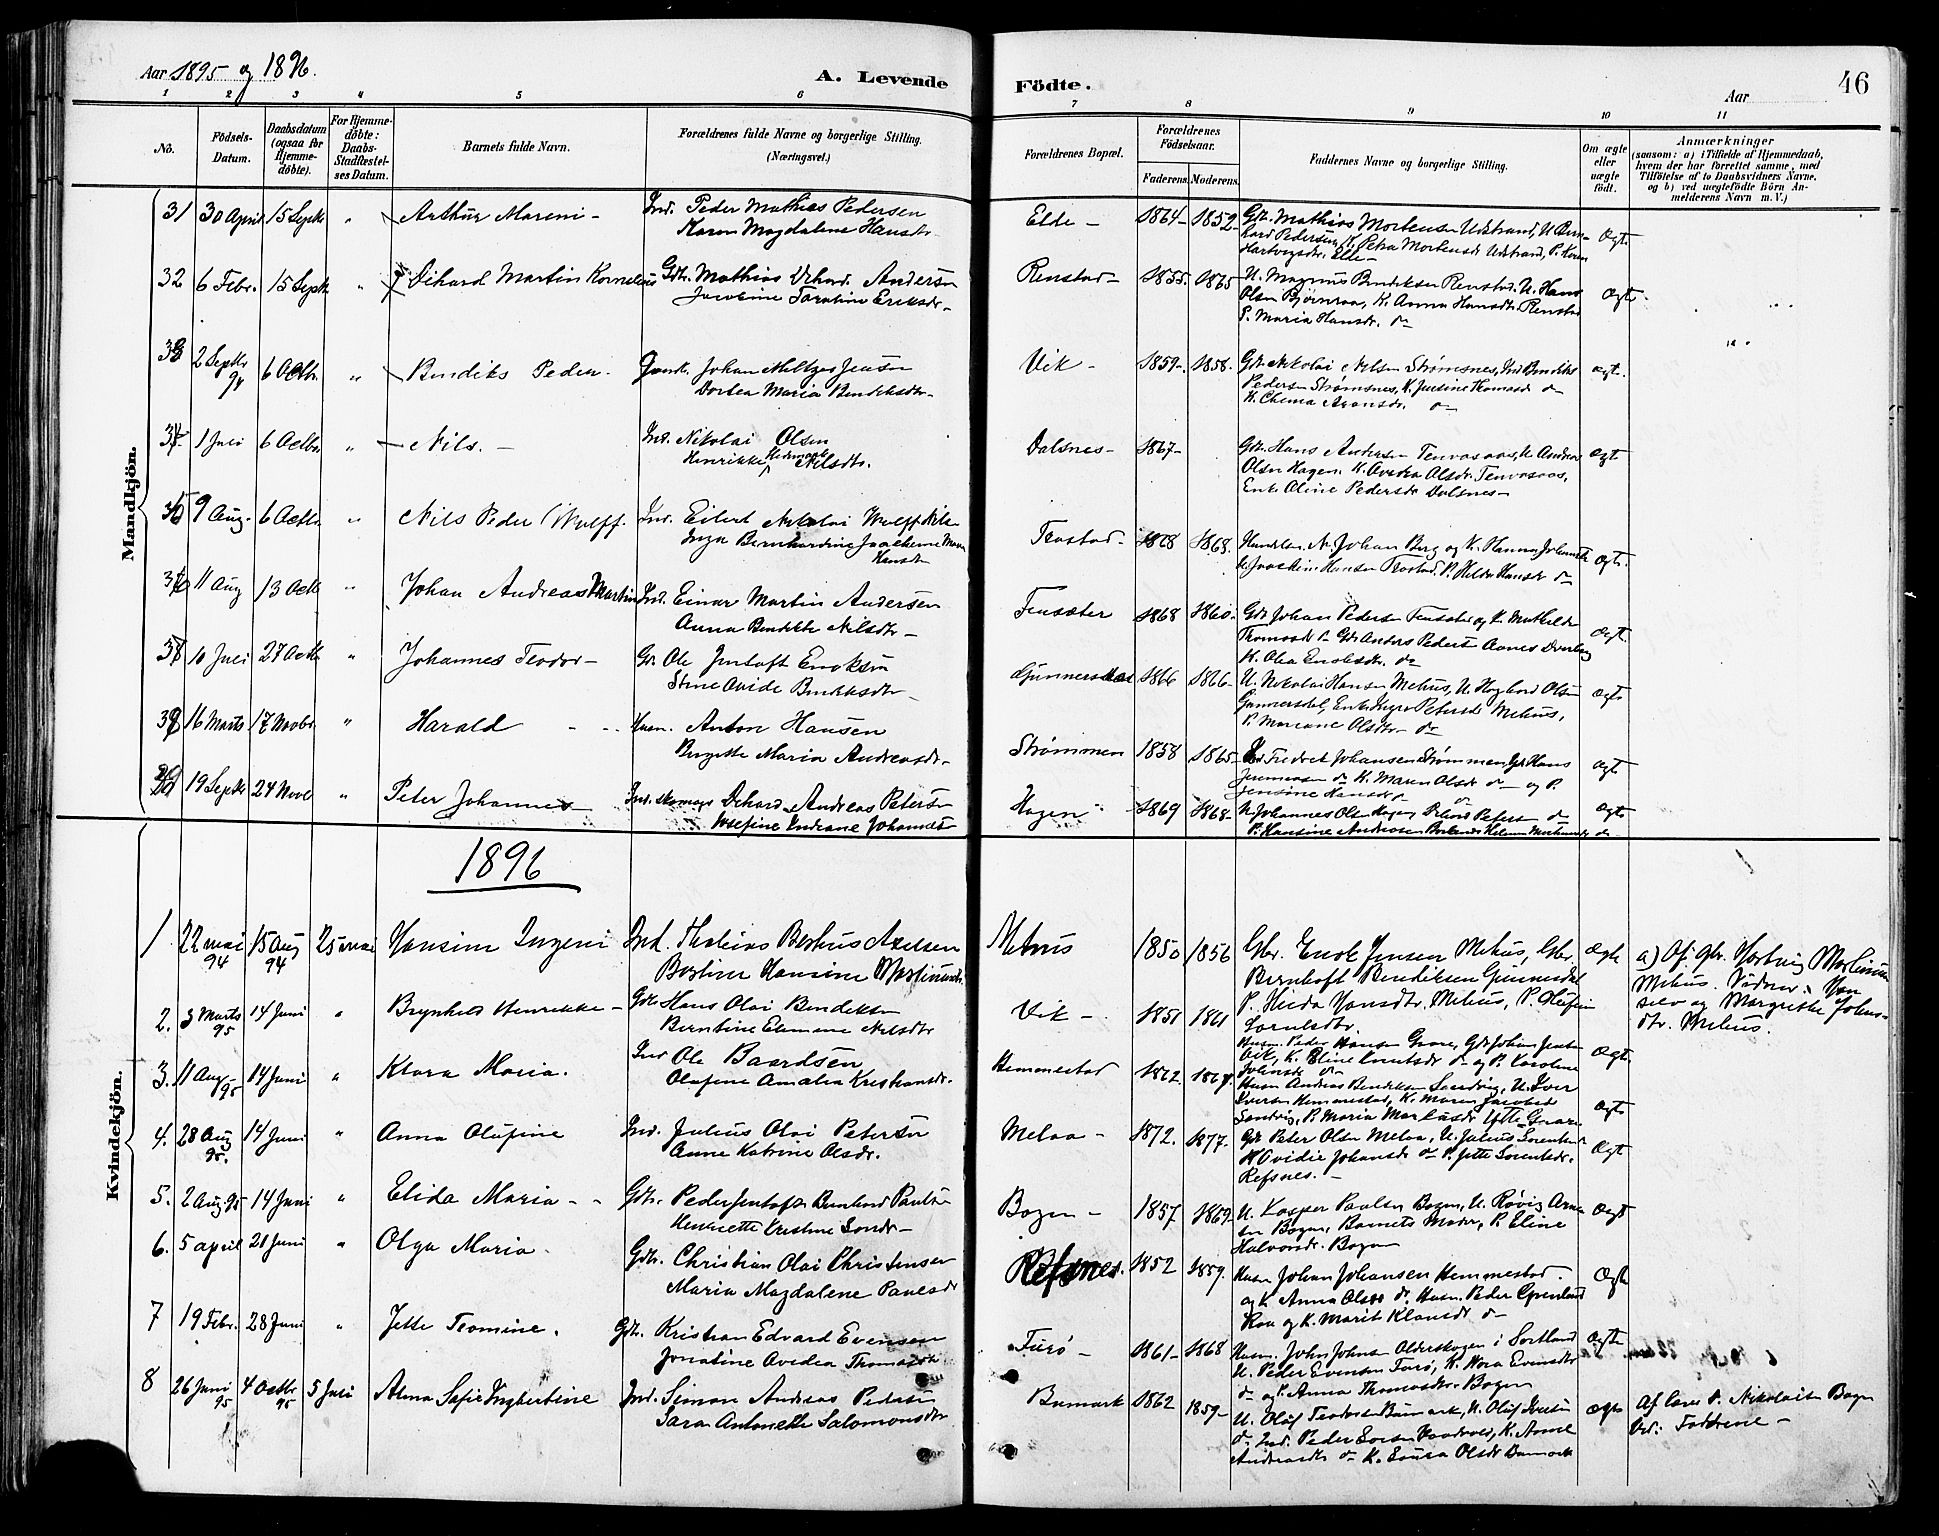 Aar 1895 og 1896.
A. Levende
Födte.
Aar
46
1 2 3 4 5 6 7 8 9 10 11
Nô.
Födsels-Datum.
Daabsdatum (ogsaa for Hjemme-döbte).
For Hjemme-döbte: Daabs-Stadfæstel-ses Datum.
Barnets fulde Navn.
Forældrenes fulde Navne og borgerlige Stilling. (Næringsvei.)
Forældrenes Bopæl.
Forældrenes Födselsaar.
Faderens. Moderens.
Faddernes Navne og borgerlige Stilling.
Om ægte eller uægte födt.
Anmærkninger
(saasom: a) i Tilfælde af Hjemmedaab,
hvem der har forrettet samme, med
Tilföielse af to Daabsvidners Navne,
og b) ved uægtefödte Börn An-
melderens Navn m. V.)
Mandkjön.
31 30 April 15 Septb " Arthur Mareni - Ind. Peder Mathias Pedersen
Karen Magdalene Hansdtr.
Elde - 1864- 1852- Gdb. Mathias Mortensen Udstrand, U. Bern-
hard Pedersen, K. Petra Mortensdr Udstrand, P. Karen
Hartvigsdtr. Elle - Ægt.
32 6 Febr. 15 Septb " Dihard Martin Kornelius Gdb. Mathias Dehard Andersen
Jacobine Taraline Eriksdr -
Renstad - 1855. 1865 - U. Magnus Bendiksen Renstad. U. Hans
Olsen Bjørnraa, K. Anna Hansdtr Renstad
P. Maria Hansdr. do Ægt.
33 2 Septbr 94 6 Octbr. " Bendiks Peder - Johan Meltzer Jensen
Dortea Maria Bendiksdtr -
Vik - 1859-. 1858. Gdb. Nikolai Nilsen Strømsnes, Ind Bendiks
Pedersen Strømsnes, K. Justine Thomasdr do
K. Chema Aronsdr. do - ægt.
34 1 Juli 6 Octbr " Nils. - Ind. Nikolai Olsen
Henrikke Nilsdtr.
Dalsnes - 1867- Gdb. Hans Andersen Tenvasaas, U. Andreas
Olsen Hagen, K. Avedea Olsdr. Tenvasaas,
Enke Oline Pedersdr Dalsnes - ægt
35 9 Aug. 6 Octbr. " Nils Peder Wulff. Ind. Eilert Nikolai Wulff Nils
Inga Bernhardine Joachime Marie
Hansdtr
Trastad - 1868. Handelsm. Johan Berg og K. Hanna
Joakim Hansen Trastad, P. Hilda Hansdr do Ægt.
36 11 Aug 13 Octb " Johan Andreas Martin Ind. Einar Martin Andersen
Anna Bendikte Nilsdtr -
Finsæter 1868 1860. Gdb Johan Pedersen Finsæter og K. Mathilde
Thomasdr do Gdb Anders Pedersen Aanes Dverberg
K. Olea Enoksdtr. do Ægt.
37 10 Juli 27 Octb " Johannes Teodor - Gdb. Ole Jentoft Enoksen
Stine Avide Bendiksdtr -
Gunnersdal 1866 1866- U. Nikolai Hansen Mehus, U. Hagbard Olsen
Gunnersdal, Enke Inger Petersdr Mehus,
P. Mariane Olsdtr - do Ægt
38 16 Marts 17 Novbr. " Harald - Husm. Anton Hansen
Birgitte Maria Andreasdr.
Strømmen 1858 1865- Fredrik Johansen Strømmen, Gdb Hans
Jeremiasen do K. Maren Olsdr do og P.
Jensine Hansdr do ægt
39 19 Septbr 24 Novb " Peter Johannes Ind. Dehard Andreas Petersen
Josefine Andreane Johannesdr
Hagen 1869 1868- U. Johannes Olsen Hagen Petersen do
P. Hansine Andreasen do Ægt
1896
Kvindekjön.
1 22 mai 94 15 Aug 94 25 mai Hansine Ingeni Ind. Thobias Berthus Axelsen
Bertine Hansine Martinusdr.
Mehus 1850 1856 Gbr. Enok Jensen Mehus, Gbr.
Bernhoft Bendiksen Gunnersdal
P. Hilda Hansdtr. Mehus, P. Olufin
Cornelsdtr. Ægte a) Af Gbr. Hartvig Martinsen
Mehus. Vidner: Han
selv og Margrethe Johns-
dtr. Mehus.
2. 3 Marts 95 14 Juni " Brynhild Henrikke - Gdb Hans Olai Bendiksen
Berntine Elemine Nilsdtr
Vik - 1851 1861 Husm. Peder Hansen Grave, Gdb Johan Jentoft
Vik, K. Eline Knutsdr do og P. Karoline
Johnsdr do Ægt.
3. 11 Aug. 95 14 Juni " Klara Maria. Ind Ole Baardsen
Olufine Amalia Kristiansdr.
Hemmestad 1862. 1867. Husm Andreas Bendiksen Sandvig, U. Iver
Iversen Hemmestad, K. Maren Jacobsdr
Sandvig, P. Maria Markusdr Ytre-Grave Ægt
4. 28 Aug 95. 14 Juni " Anna Olufine Ind. Julius Olai Petersen
Anne Katrine Olsdr.
Melaa - 1872. 1877- Gdb Peter Olsen Melaa, U. Julius Sorensen
K Ovidie Johansdr do P. Jette Sorensdr.
Refsnes. - Ægt
5. 2 Aug 95 14 Juni " Elida Maria - Gdb. Peder Jentoft Bernhard Paulsen
Henriette Kristine Sorsdr -
Bogen - 1857 1869 U. Kasper Paulsen Bogen, U. Røvig Arne
sen Bogen, Barnets Moder, P. Eline
Halvorsdr. Bogen Ægt
6. 5 april 21 Juni " Olga Maria. Gdb. Christian Olai Christensen
Maria Magdalene Paulsdr
Refsnes. 1852 1859. Husm Johan Johansen Hemmestad.
og K. Anna Olsdr do Husm. Peder Grønland
Roa og K. Marit Klausdr do Ægt
7 19 Febr. 28 Juni " Jette Tomine. Gdb. Kristian Edvard Evensen
Jonatine Avedea Thomasdr
Furø - 1861- 1868 Husm. John Johnsen Olderskogen i Sortland
U. Peder Evensen Furø, K. Nora Evensdr
do og P. Anna Thomasdtr. Bogen Ægte
8 26 Juni 95 4 Octbr 95 5 Juli Alma Sofie Ingbertine Ind. Simon Andreas Pedersen
Sara Antonette Salomonsdtr
Bremark 1862 1859- U. Oluf Teodorsen Bumark, U. Oluf Iversen
do Ind. Peder Larsen, K. Anne
Andreasdr do K. Laura Olsdr Bumark ægte Af Lars P. Nikolaisen Bogen
Vid: Faddrene -